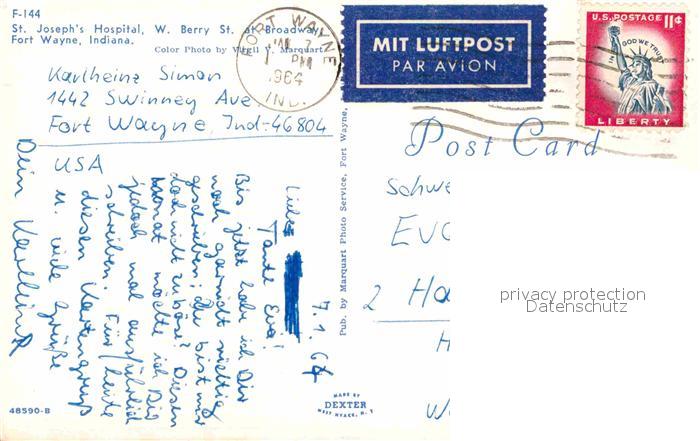 F-144
St. Joseph's Hospital, W. Berry St. at Broadway,
Fort Wayne, Indiana.
Color Photo by Virgil V. Marquart
FORT WAYNE
PM
1964
IND.
MIT LUFTPOST
PAR AVION
U.S. POSTAGE 11¢
IN GOD WE TRUST
LIBERTY
Karlheinz Simon
1442 Swinney Ave
Fort Wayne, Ind-46804
USA
Post Card
7.1.64
Liebe
Tante Eva!
Bis jetzt habe ich Dir
noch garnicht richtig
geschrieben; Du bist mir
doch nicht zu böse? Diesen
Monat möchte ich Dir
jedoch mal ausführlich
schreiben. Für heute
diesen Kartengruß
u. viele Grüße
Dein Karlheinz
Pub. by Marquart Photo Service, Fort Wayne,
Schwe
EVA
2 Ha
H
W
privacy protection
Datenschutz
48590-B
MADE BY
DEXTER
WEST NYACK, N.Y.